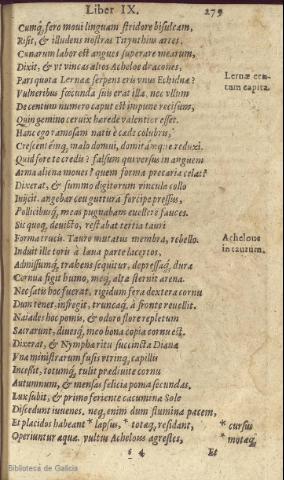 Liber IX. 279
Cumq́, fero moui linguam stridore bisulcam,
Risit, & illudens nostras Tirynthius artes.
Cunarum labor est angues superare mearum,
Dixit, & vt vincas altos Acheloe dracones,
Pars quota Lernææ serpent eris vnus Echidnæ?
Lernææ centum capita.
Vulneribus fœcunda suis erat illa. nec vllum
De centum numero caput est impune recisum,
Quin gemino ceruix hærede valentior esset.
Hanc ego ramosam natis è cæde colubris,
Crescentémq́, malo domui, domitámque reduxi.
Quid fore te credis? falsum qui versus in anguem
Arma aliena moues? quem forma precaria celat?
Dixerat, & summo digitorum vincula collo
Inijcit. angebar ceu guttura forcipe pressus,
Pollicibusq́, meas pugnabam euellere fauces.
Sic quoq́, deuicto, restabat tertia tauri
Forma trucis. Tauro mutatus membra, rebello.
Achelous in taurum.
Induit ille toris à læua parte lacertos,
Admissumq́, trahens sequitur, depressaq́, dura
Cornua figit humo, meq́, alta sternit arena.
Nec satis hoc fuerat. rigidum fera dextera cornu
Dum tenet, infregit, truncaq́, à fronte reuellit.
Naiades hoc pomis, & odoro flore repletum
Sacrarunt, diuesq́, meo bona copia cornu est.
Dixerat, & Nympha ritu succincta Dianæ
Vna ministrarum fusis vtrinq, capillis
Incessit, totumq́, tulit prædiuite cornu
Autumnum, & mensas felicia poma secundas.
Lux subit, & primo feriente cacumina Sole
Discedunt iuuenes. neq, enim dum flumina pacem,
Et placidos habeant * lapsus, * totæq, residant,
* cursus
Operiuntur aquæ. vultus Achelous agrestes,
* motæq́,
s 4 Et
Biblioteca de Galicia